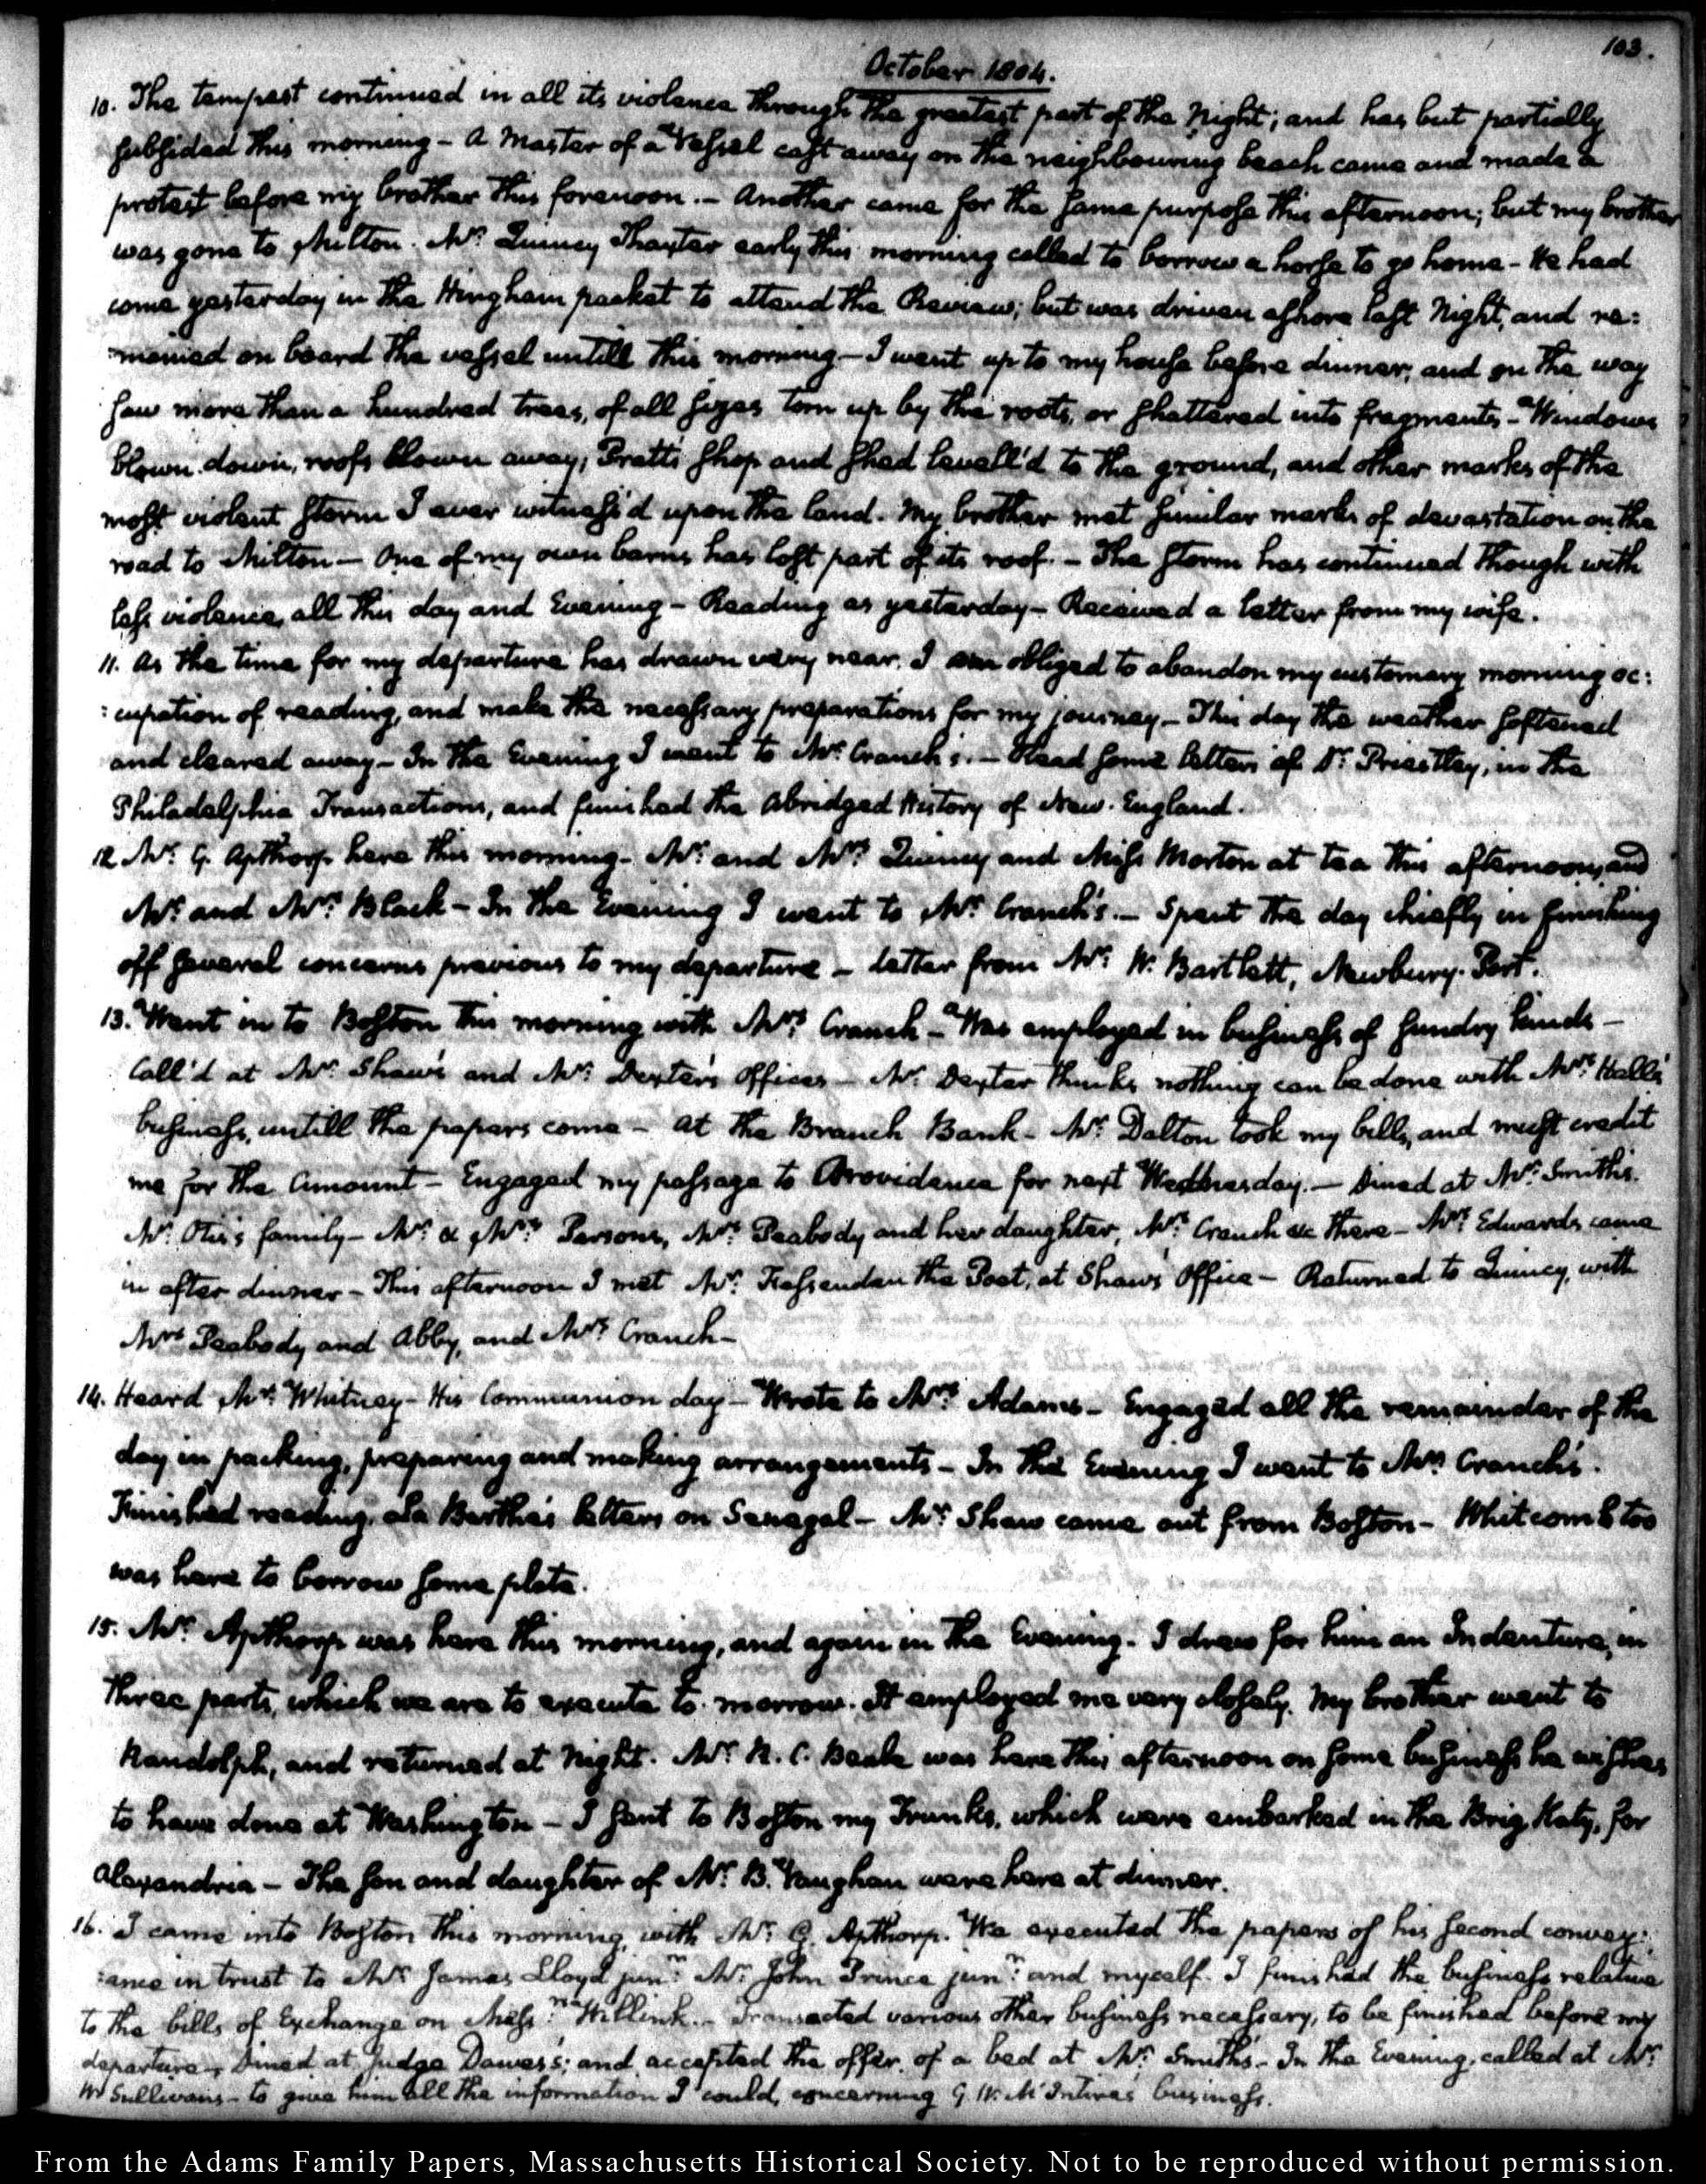 103.
October 1804.
10. The tempest continued in all its violence through the greatest part of the Night; and has but partially
subsided this morning - A Master of a Vessel cast away on the neighbouring beach came and made a
protest before my brother this forenoon. - Another came for the same purpose this afternoon; but my brother
was gone to Milton. Mr. Quincy Thaxter early this morning called to borrow a horse to go home - He had
come yesterday in the Hingham packet to attend the Review; but was driven ashore last Night, and re:
:mained on board the vessel untill this morning - I went up to my house before dinner, and on the way
saw more than a hundred trees, of all sizes torn up by the roots, or shattered into fragments - Windows
blown down, roofs blown away, Pratt's shop and shed levell'd to the ground, and other marks of the
most violent storm I ever witness'd upon the land. My brother met similar marks of devastation on the
road to Milton - One of my own barns has lost part of its roof. - The storm has continued though with
less violence, all this day and Evening - Reading as yesterday - Received a letter from my wife.
11. As the time for my departure has drawn very near, I am obliged to abandon my customary morning oc:
:cupation of reading, and make the necessary preparations for my journey - This day the weather softened
and cleared away - In the Evening I went to Mr. Cranch's. - Read some letters of Dr. Priestley, in the
Philadelphia Transactions, and finished the abridged History of New-England.
12 Mr. G. Apthorp here this morning - Mr. and Mrs. Quincy and Miss Morton at tea this afternoon, and
Mr. and Mrs. Black - In the Evening I went to Mr. Cranch's. - Spent the day chiefly in finishing
off several concerns previous to my departure - Letter from Mr. W. Bartlett, Newbury-Port.
13. Went in to Boston this morning with Mrs. Cranch - Was employed in business of sundry kinds -
Call'd at Mr. Shaw's and Mr. Dexter's Offices - Mr. Dexter thinks nothing can be done with Mrs. Hall's
business, untill the papers come - At the Branch Bank - Mr. Dalton took my bills, and must credit
me for the Amount - Engaged my passage to Providence for next Wednesday. - Dined at Mr. Smith's.
Mr. Otis's family - Mr. & Mrs. Parsons, Mrs. Peabody and her daughter, Mrs. Cranch &c there - Mrs. Edwards came
in after dinner - This afternoon I met Mr. Fessenden the Poet, at Shaw's Office - Returned to Quincy, with
Mrs Peabody and Abby, and Mrs. Cranch -
14. Heard Mr. Whitney - His Communion day - Wrote to Mrs. Adams - Engaged all the remainder of the
day in packing, preparing and making arrangements - In the Evening I went to Mr. Cranch's.
Finished reading La Barthe's letters on Senegal - Mr. Shaw came out from Boston - Whitcomb too
was here to borrow some plate.
15. Mr. Apthorp was here this morning, and again in the Evening. I drew for him an Indenture, in
three parts, which we are to execute to-morrow. It employed me very closely. My brother went to
Randolph, and returned at Night. Mr. N. C. Beale was here this afternoon on some business he wishes
to have done at Washington - I sent to Boston my Trunks, which were embarked in the Brig Katy, for
Alexandria - The son and daughter of Mr. B. Vaughan were here at dinner.
16. I came into Boston this morning, with Mr. G. Apthorp. We executed the papers of his second convey:
:ance in trust to Mr. James Lloyd junr. Mr. John Prince junr. and myself. I finished the business relative
to the bills of Exchange on Messrs. Willink. - Transacted various other business necessary, to be finished before my
departure - Dined at Judge Dawes's; and accepted the offer of a bed at Mr. Smith's - In the Evening, called at Mr.
W Sullivans - to give him all the information I could, concerning G. W. McIntire's business.
From the Adams Family Papers, Massachusetts Historical Society. Not to be reproduced without permission.